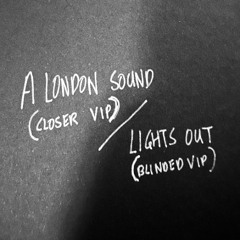 A LONDON SOUND
(CLOSER VIP)
/
LIGHTS OUT
(BLINDED VIP)